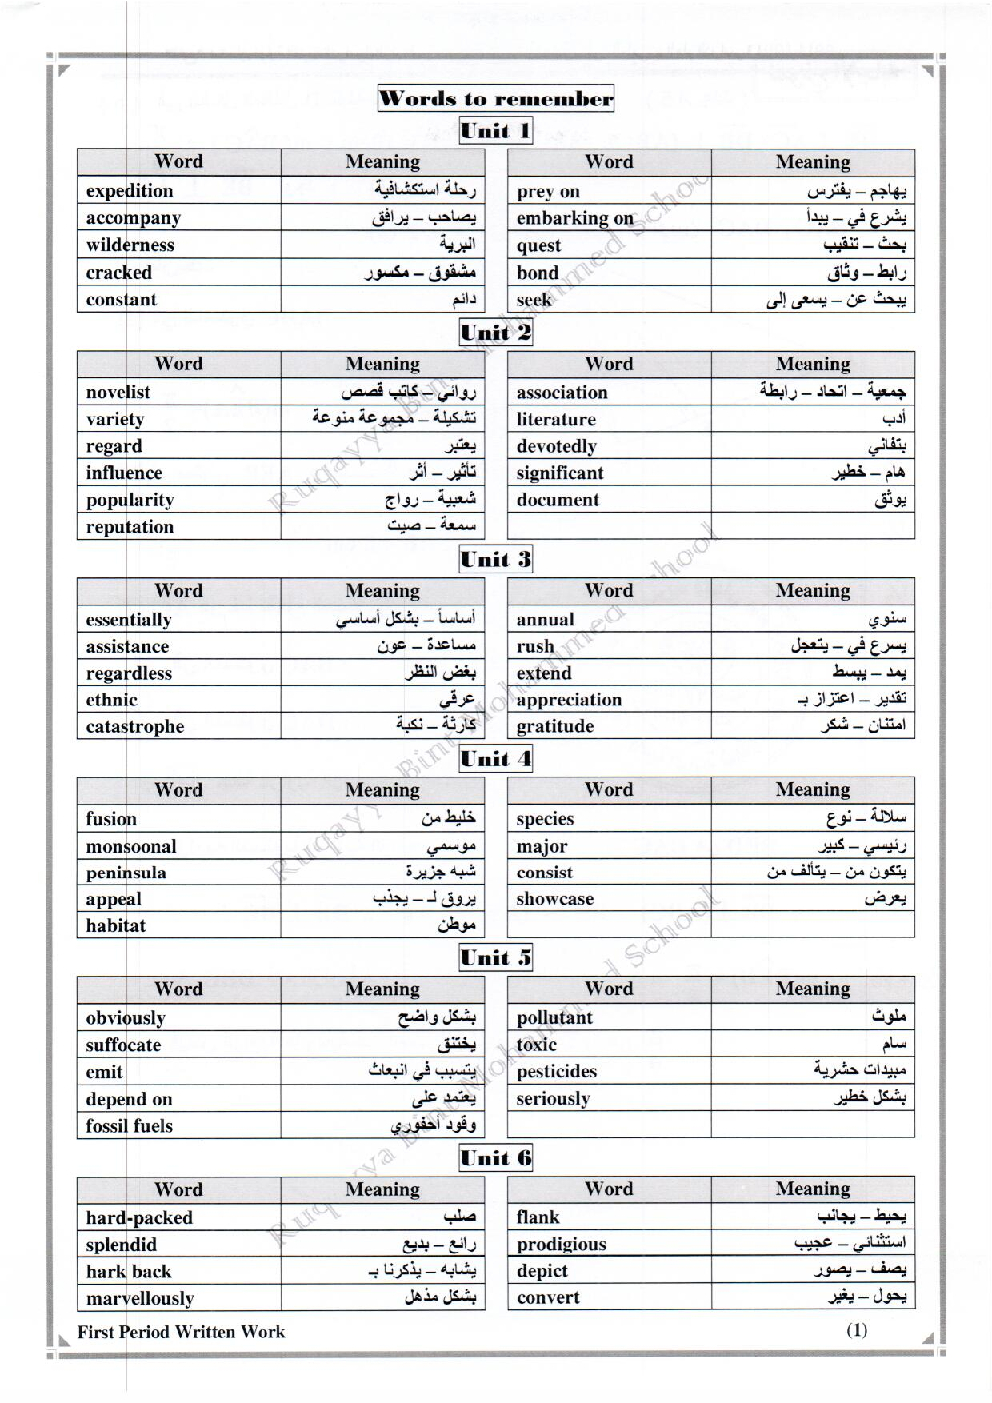 Words to remember
Unit 1
Word Meaning Word Meaning
expedition رحلة استكشافية prey on يهاجم – يفترس
accompany يصاحب – يرافق embarking on يشرع في – يبدأ
wilderness البرية quest بحث – تنقيب
cracked مشقوق – مكسور bond رابط – وثاق
constant دائم seek يبحث عن – يسعى إلى
Unit 2
Word Meaning Word Meaning
novelist روائي – كاتب قصص association جمعية – اتحاد – رابطة
variety تشكيلة – مجموعة منوعة literature أدب
regard يعتبر devotedly بتفاني
influence تأثير – أثر significant هام – خطير
popularity شعبية – رواج document يوثق
reputation سمعة – صيت
Unit 3
Word Meaning Word Meaning
essentially أساساً – بشكل أساسي annual سنوي
assistance مساعدة – عون rush يسرع في – يتعجل
regardless بغض النظر extend يمد – يبسط
ethnic عرقي appreciation تقدير – اعتزاز بـ
catastrophe كارثة – نكبة gratitude امتنان – شكر
Unit 4
Word Meaning Word Meaning
fusion خليط من species سلالة – نوع
monsoonal موسمي major رئيسي – كبير
peninsula شبه جزيرة consist يتكون من – يتألف من
appeal يروق لـ – يجذب showcase يعرض
habitat موطن
Unit 5
Word Meaning Word Meaning
obviously بشكل واضح pollutant ملوث
suffocate يختنق toxic سام
emit يتسبب في انبعاث pesticides مبيدات حشرية
depend on يعتمد على seriously بشكل خطير
fossil fuels وقود احفوري
Unit 6
Word Meaning Word Meaning
hard-packed صلب flank يحيط – يجانب
splendid رائع – بديع prodigious استثنائي – عجيب
hark back يشابه – يذكرنا بـ depict يصف – يصور
marvellously بشكل مذهل convert يحول – يغير
First Period Written Work (1)
Ruqayya Bint Mohammed School
Ruqayya Bint Mohammed School
Ruqayya Bint Mohammed School